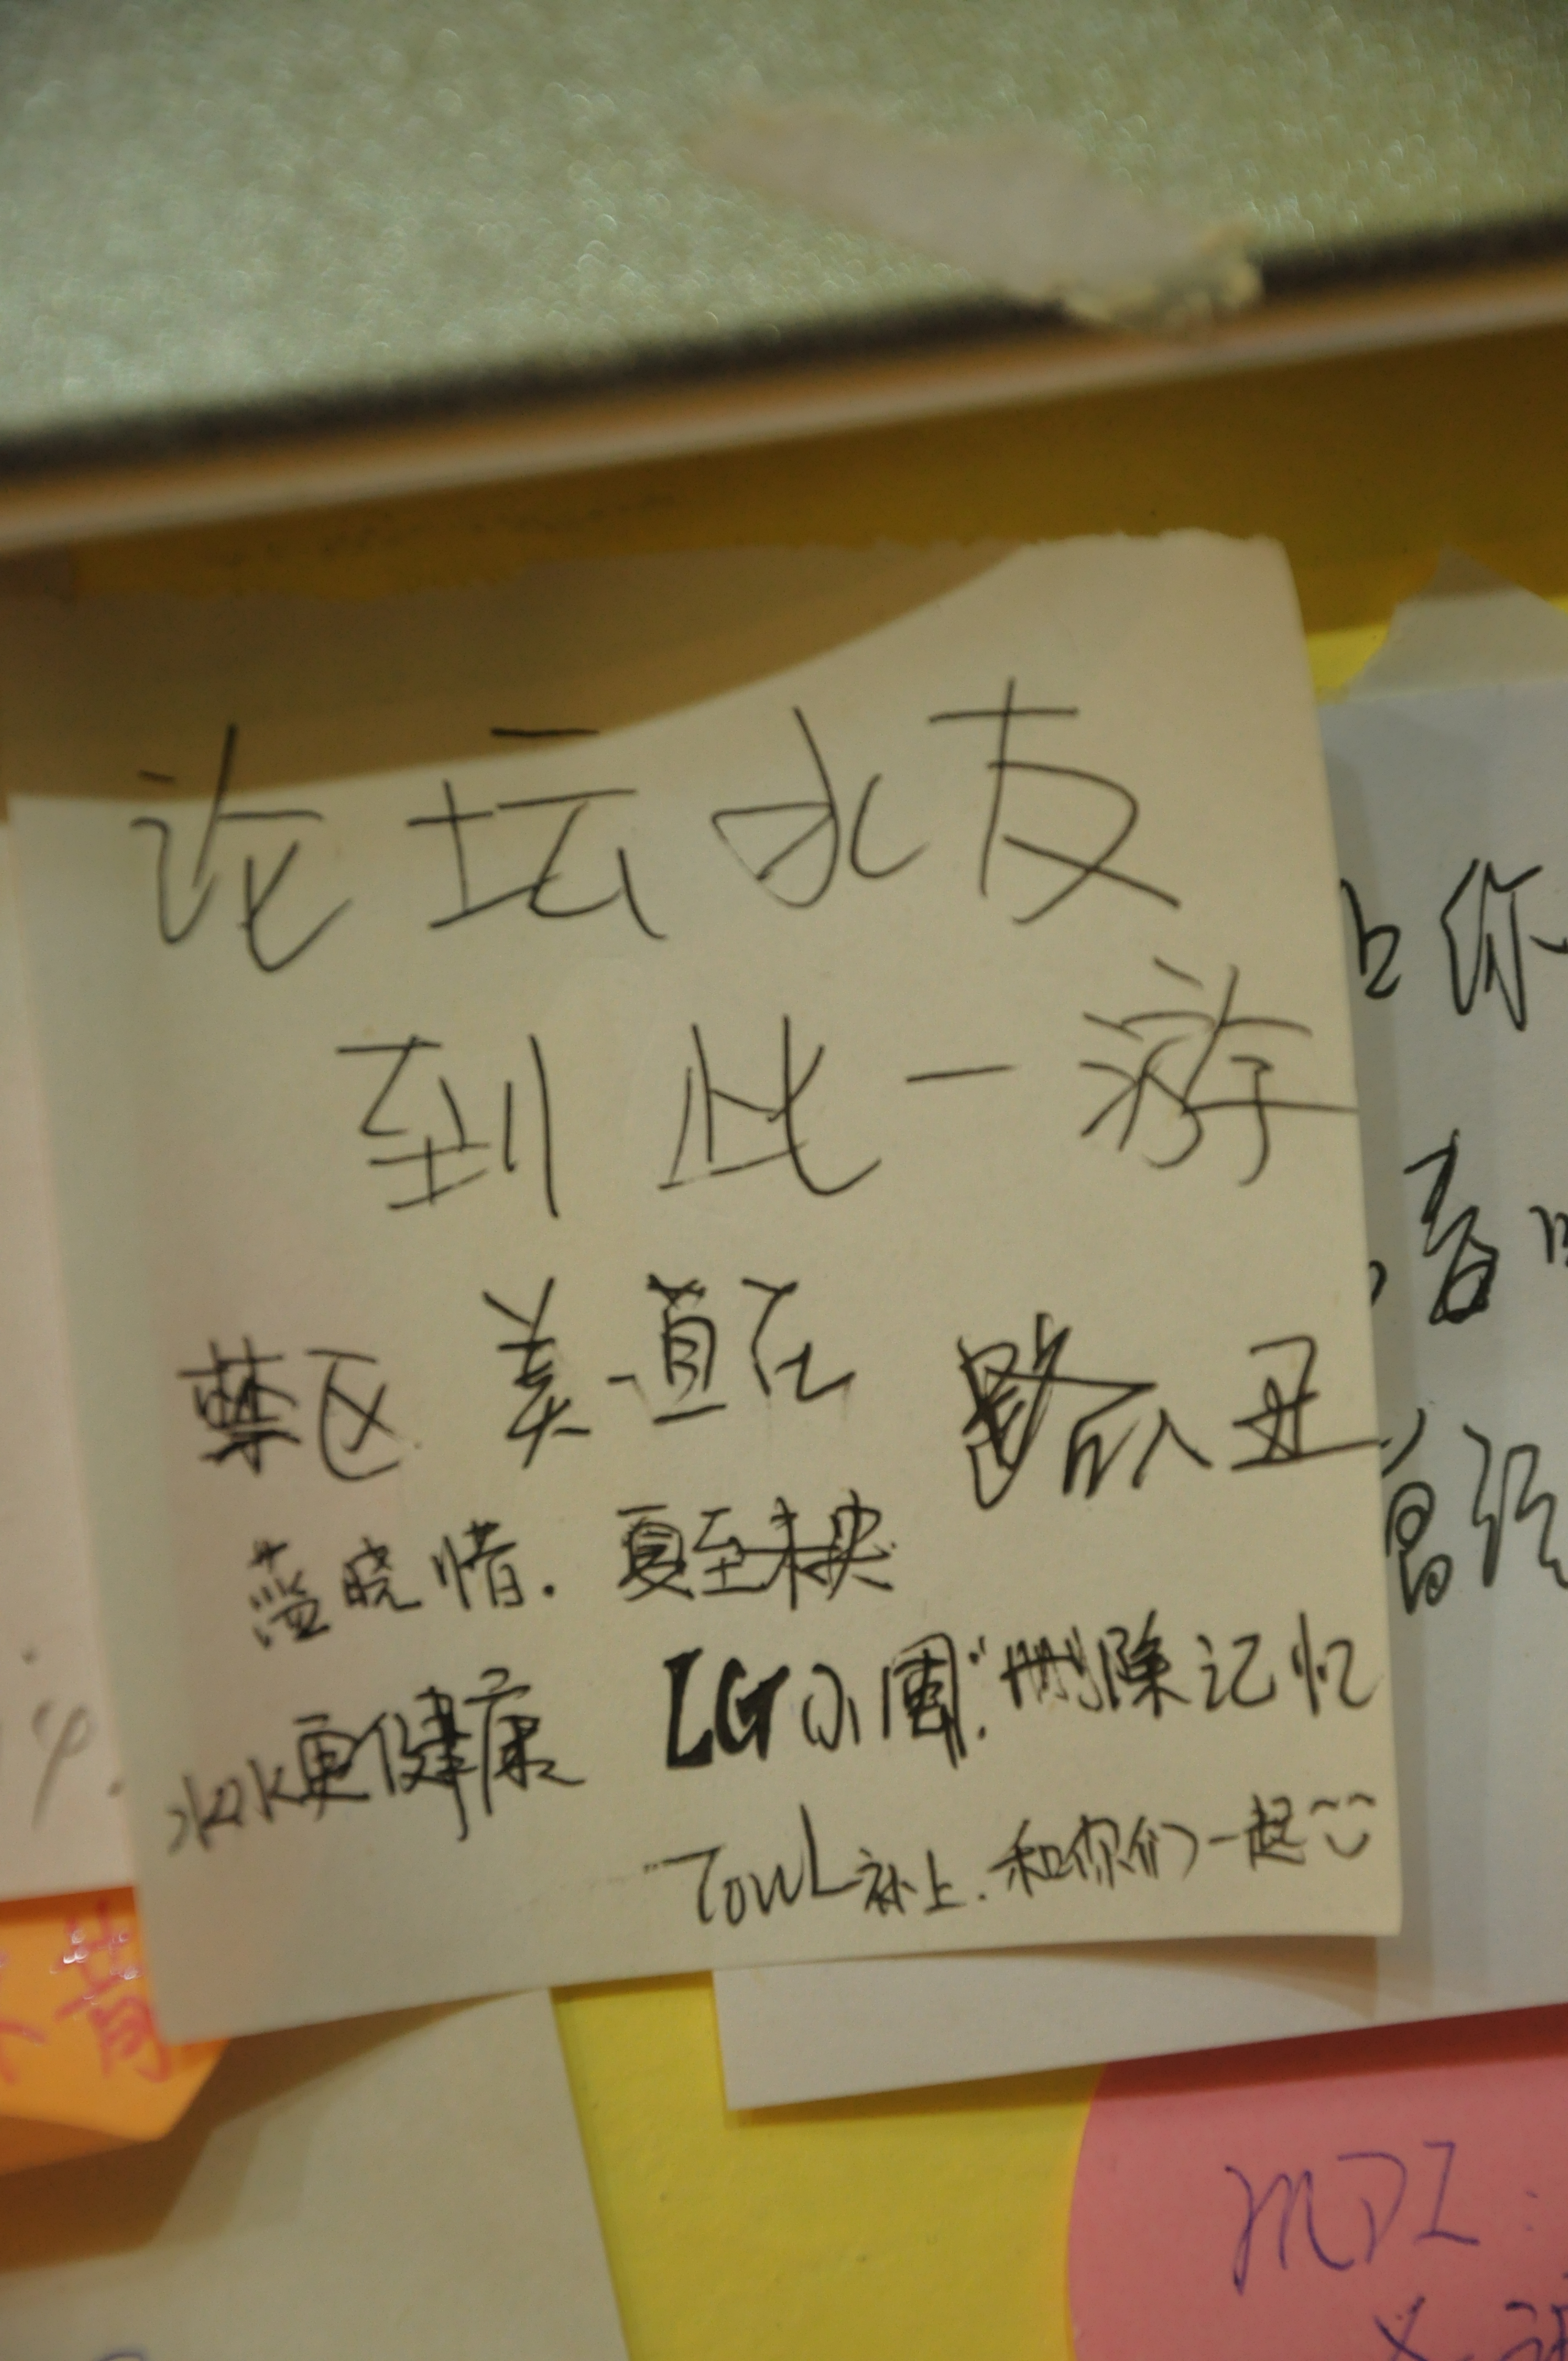 论坛水友
到此一游
禁区 美一直在 路人丑
蓝晓惜. 夏至未央
水水更健康 LG小周. "删除记忆
TowL补上.和你们一起
你
着
曾经
MPI: